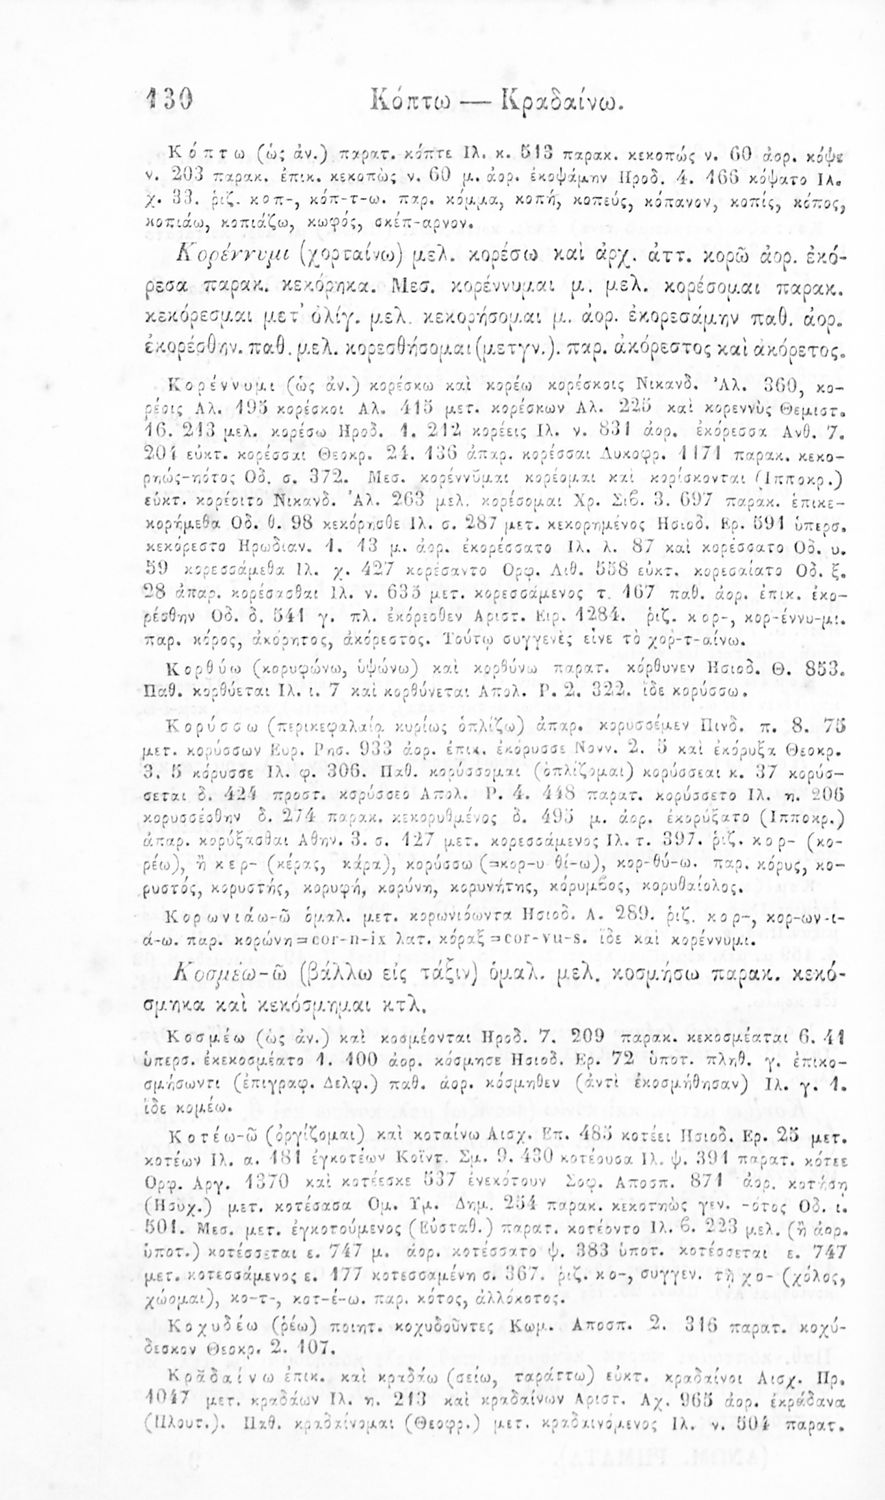 130 Κόπτω — Κραδαίνω.
Κόπτω (ὡς ἀν.) παρατ. κόπτε Ἰλ. κ. 513 παρακ. κεκοπώς ν. 60 ἀορ. κόψε
ν. 203 παρακ. ἐπικ. κεκοπὼς ν. 60 μ. ἀορ. ἐκοψάμην Ἡροδ. 4. 166 κόψατο Ἰλ.
χ. 33. ῥιζ. κοπ-, κόπ-τ-ω. παρ. κόμμα, κοπή, κοπεύς, κόπανον, κοπίς, κόπος,
κοπιάω, κοπιάζω, κωφός, σκέπ-αρνον.
Κορέννυμι (χορταίνω) μελ. κορέσω καὶ ἀρχ. ἀττ. κορῶ ἀορ. ἐκό-
ρεσα παρακ. κεκόρηκα. Μεσ. κορέννυμαι μ. μελ. κορέσομαι παρακ.
κεκόρεσμαι μετ' ὀλίγ. μελ. κεκορήσομαι μ. ἀορ. ἐκορεσάμην παθ. ἀορ.
ἐκορέσθην. παθ. μελ. κορεσθήσομαι (μετγν.). παρ. ἀκόρεστος καὶ ἀκόρετος.
Κορέννυμι (ὡς ἀν.) κορέσκω καὶ κορέω κορέσκοις Νικανδ. Ἀλ. 360, κο-
ρέοις Ἀλ. 195 κορέσκοι Ἀλ. 415 μετ. κορέσκων Ἀλ. 225 καὶ κορεννὺς Θεμιστ.
16. 213 μελ. κορέσω Ἡροδ. 1. 212 κορέεις Ἰλ. ν. 831 ἀορ. ἐκόρεσσα Ἀνθ. 7.
204 εὐκτ. κορέσσαι Θεοκρ. 24. 136 ἀπαρ. κορέσσαι Λυκοφρ. 1171 παρακ. κεκο-
ρηώς-ηότος Ὀδ. σ. 372. Μεσ. κορέννῡμαι κορέομαι καὶ κορίσκονται (Ἱπποκρ.)
εὐκτ. κορέοιτο Νικανδ. Ἀλ. 263 μελ. κορέσομαι Χρ. Σιβ. 3. 697 παρακ. ἐπικε-
κορήμεθα Ὀδ. θ. 98 κεκόρησθε Ἰλ. σ. 287 μετ. κεκορημένος Ἡσιοδ. Ἐρ. 591 ὑπερσ.
κεκόρεστο Ἡρωδιαν. 1. 13 μ. ἀορ. ἐκορέσσατο Ἰλ. λ. 87 καὶ κορέσσατο Ὀδ. υ.
59 κορεσσάμεθα Ἰλ. χ. 427 κορέσαντο Ὀρφ. Λιθ. 558 εὐκτ. κορεσαίατο Ὀδ. ξ.
28 ἀπαρ. κορέσασθαι Ἰλ. ν. 635 μετ. κορεσσάμενος τ. 167 παθ. ἀορ. ἐπικ. ἐκο-
ρέσθην Ὀδ. δ. 541 γ. πλ. ἐκόρεσθεν Ἀριστ. Εἰρ. 1284. ῥιζ. κορ-, κορ-έννυ-μι.
παρ. κόρος, ἀκόρητος, ἀκόρεστος. Τούτῳ συγγενὲς εἶνε τὸ χορ-τ-αίνω.
Κορθύω (κορυφώνω, ὑψώνω) καὶ κορθύνω παρατ. κόρθυνεν Ἡσιοδ. Θ. 853.
Παθ. κορθύεται Ἰλ. ι. 7 καὶ κορθύνεται Ἀπολ. Ρ. 2. 322. ἴδε κορύσσω.
Κορύσσω (περικεφαλαίᾳ κυρίως ὁπλίζω) ἀπαρ. κορυσσέμεν Πινδ. π. 8. 75
μετ. κορύσσων Εὐρ. Ῥησ. 933 ἀορ. ἐπικ. ἐκόρυσσε Νονν. 2. 5 καὶ ἐκόρυξα Θεοκρ.
3. 5 κόρυσσε Ἰλ. φ. 306. Παθ. κορύσσομαι (ὁπλίζομαι) κορύσσεαι κ. 37 κορύσ-
σεται δ. 424 προστ. κορύσσεο Ἀπολ. Ρ. 4. 448 παρατ. κορύσσετο Ἰλ. η. 206
κορυσσέσθην δ. 274 παρακ. κεκορυθμένος δ. 495 μ. ἀορ. ἐκορύξατο (Ἱπποκρ.)
ἀπαρ. κορύξασθαι Ἀθην. 3. σ. 127 μετ. κορεσσάμενος Ἰλ. τ. 397. ῥιζ. κορ- (κο-
ρέω), ἢ κερ- (κέρας, κάρα), κορύσσω (=κορ-υ θί-ω), κορ-θύ-ω. παρ. κόρυς, κο-
ρυστός, κορυστής, κορυφή, κορύνη, κορυνήτης, κόρυμβος, κορυθαίολος.
Κορωνιάω-ῶ ὁμαλ. μετ. κορωνιόωντα Ἡσιοδ. Α. 289. ῥιζ. κορ-, κορ-ων-ι-
ά-ω. παρ. κορώνη=cor-n-ix λατ. κόραξ=cor-vu-s. ἴδε καὶ κορέννυμι.
Κοσμέω-ῶ (βάλλω εἰς τάξιν) ὁμαλ. μελ. κοσμήσω παρακ. κεκό-
σμηκα καὶ κεκόσμημαι κτλ.
Κοσμέω (ὡς ἀν.) καὶ κοσμέονται Ἡροδ. 7. 209 παρακ. κεκοσμέαται 6. 41
ὑπερσ. ἐκεκοσμέατο 1. 100 ἀορ. κόσμησε Ἡσιοδ. Ἐρ. 72 ὑποτ. πληθ. γ. ἐπικο-
σμήσωντι (ἐπιγραφ. Δελφ.) παθ. ἀορ. κόσμηθεν (ἀντὶ ἐκοσμήθησαν) Ἰλ. γ. 1.
ἴδε κομέω.
Κοτέω-ῶ (ὀργίζομαι) καὶ κοταίνω Αἰσχ. Ἑπ. 485 κοτέει Ἡσιοδ. Ἐρ. 25 μετ.
κοτέων Ἰλ. α. 181 ἐγκοτέων Κοΐντ. Σμ. 9. 430 κοτέουσα Ἰλ. ψ. 391 παρατ. κότεε
Ὀρφ. Ἀργ. 1370 καὶ κοτέεσκε 537 ἐνεκότουν Σοφ. Ἀποσπ. 871 ἀορ. κοτήσῃ
(Ἡσυχ.) μετ. κοτέσασα Ὁμ. Ὑμ. Δημ. 254 παρακ. κεκοτηὼς γεν. -ότος Ὀδ. ι.
501. Μεσ. μετ. ἐγκοτούμενος (Εὐσταθ.) παρατ. κοτέοντο Ἰλ. β. 223 μελ. (ἢ ἀορ.
ὑποτ.) κοτέσσεται ε. 747 μ. ἀορ. κοτέσσατο ψ. 383 ὑποτ. κοτέσσεται ε. 747
μετ. κοτεσσάμενος ε. 177 κοτεσσαμένη σ. 367. ῥιζ. κο-, συγγεν. τῇ χο- (χόλος,
χώομαι), κο-τ-, κοτ-έ-ω. παρ. κότος, ἀλλόκοτος.
Κοχυδέω (ῥέω) ποιητ. κοχυδοῦντες Κωμ. Ἀποσπ. 2. 316 παρατ. κοχύ-
δεσκον Θεοκρ. 2. 107.
Κρᾰδαίνω ἐπικ. καὶ κραδάω (σείω, ταράττω) εὐκτ. κραδαίνοι Αἰσχ. Πρ.
1047 μετ. κραδάων Ἰλ. η. 213 καὶ κραδαίνων Ἀριστ. Ἀχ. 965 ἀορ. ἐκράδανα
(Πλουτ.). Παθ. κραδαίνομαι (Θεοφρ.) μετ. κραδαινόμενος Ἰλ. ν. 504 παρατ.